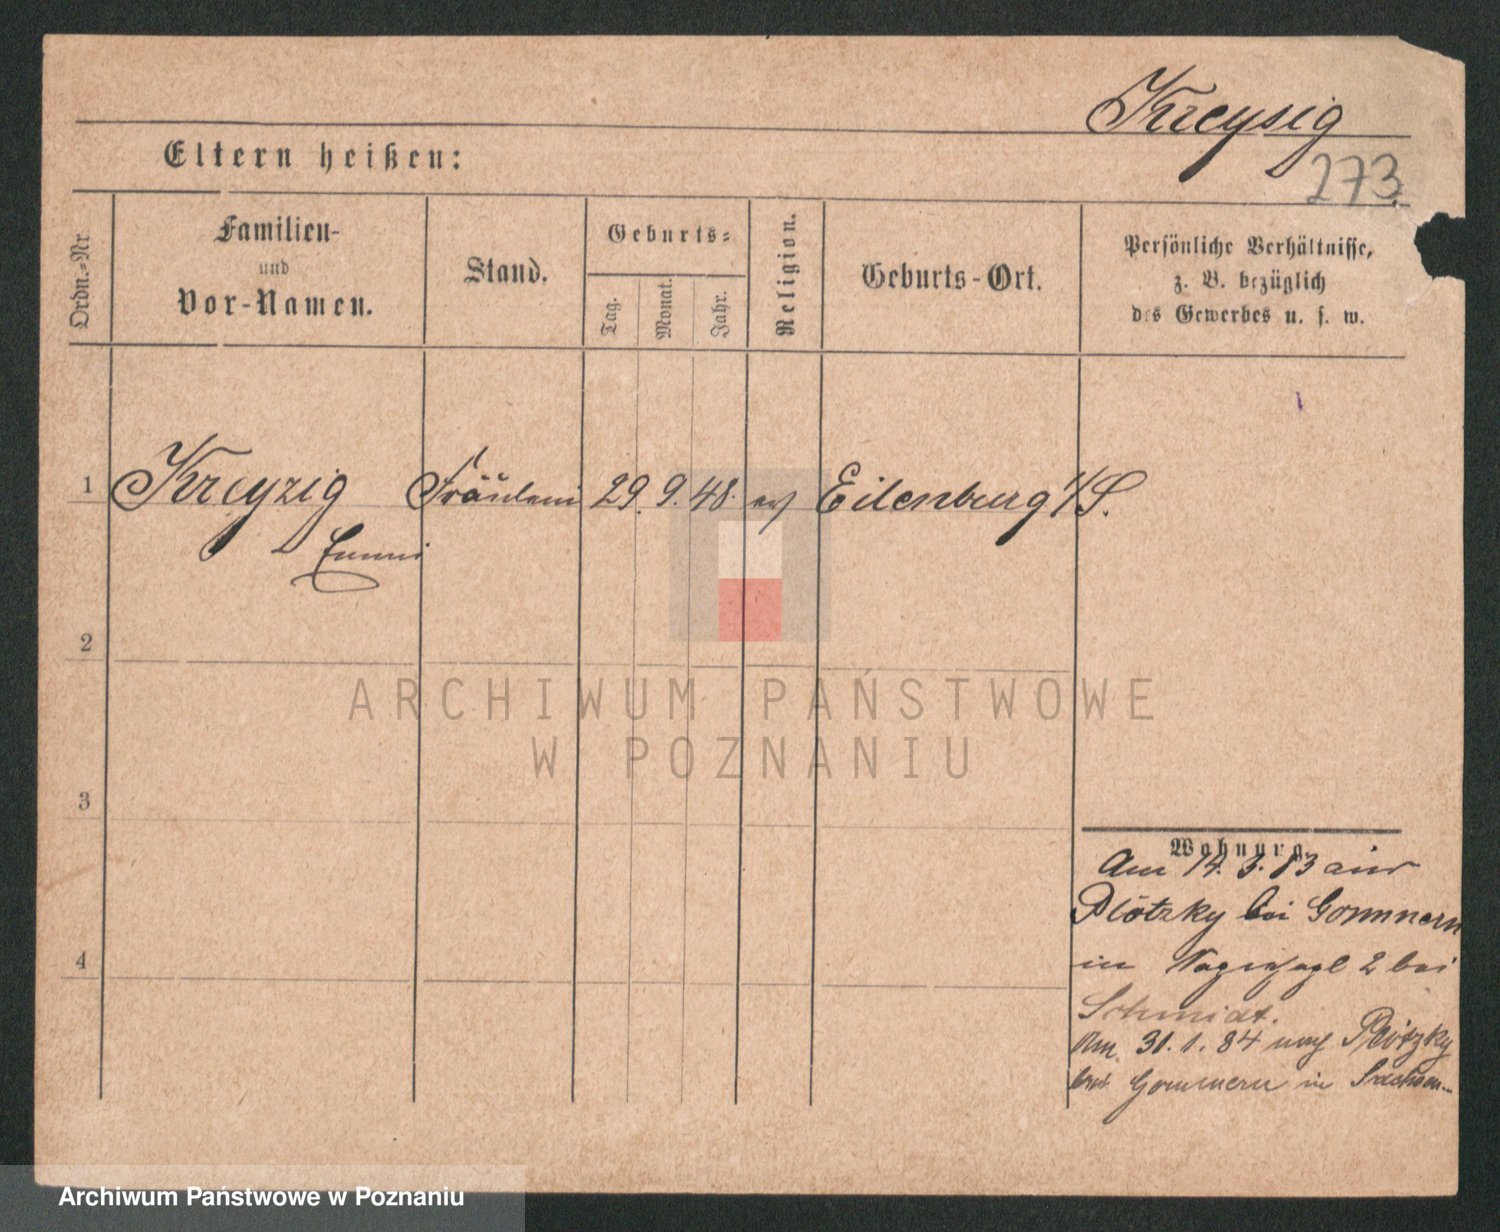 Kreysig
273
Eltern heißen:
Ordn.-Nr.
Familien-
und
Vor-Namen.
Stand.
Geburts-
Tag.
Monat.
Jahr.
Religion.
Geburts-Ort.
Persönliche Verhältnisse,
z. B. bezüglich
des Gewerbes u. s. w.
1 Kreyzig Fräulein 29. 9. 48. ev Eilenburg /S.
Emmi
2
3
4
ARCHIWUM PAŃSTWOWE
W POZNANIU
Wohnung.
Am 14. 3. 83 aus
Plötzky bei Gommern
in 2 bei
Schmidt.
Am 31. 1. 84 nach Plötzky
bei Gommern in Sachsen
Archiwum Państwowe w Poznaniu